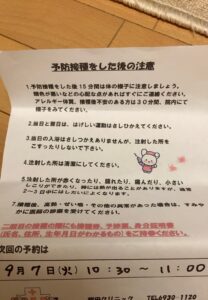 予防接種をした後の注意
1.予防接種をした後15分間は体の様子に注意しましょう。
顔色が悪いなどの心配な点があればすぐにご連絡ください。
アレルギー体質、接種後不安のある方は30分間、院内にて
様子をみてください。
2.当日と翌日は、はげしい運動はさしひかえてください。
3.当日の入浴はさしつかえありませんが、注射した所を
こすったりしないで下さい。
4.注射した所は清潔にしてください。
5.注射した所が赤くなったり、腫れたり、痛んだり、小さい
しこりができたり、
2~3日中にはしだいによくなります。
7.接種後、高熱・せい・その他の異常があった場合は、すみや
かに医師の診察を受けてください。
二回目の接種の際にも接種券、予診票、身分証明書
(氏名、住所、生年月日がわかるもの)をご持参ください。
次回の予約は
9月7日(火)10:30~11:00
クリニック TEL6930-1120